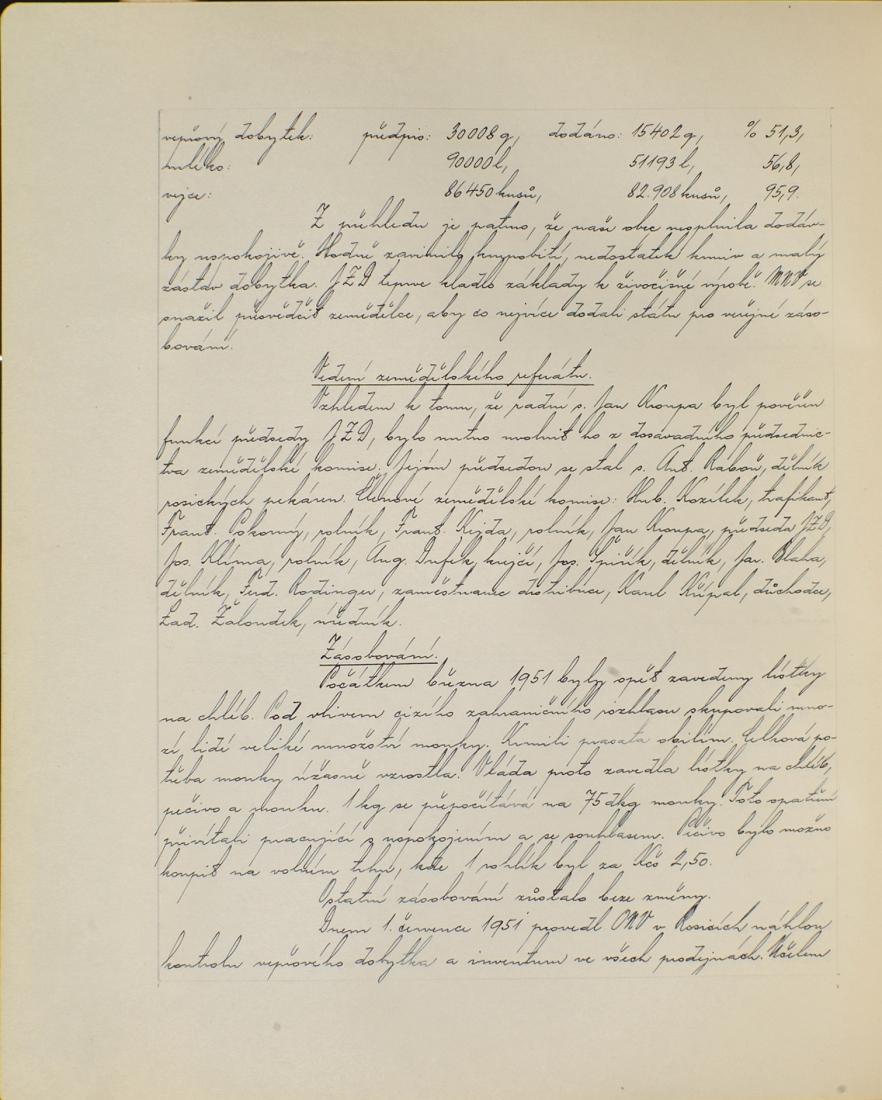 vepřový dobytek: předpis: 30008 q, dodáno: 15402 q, % 51,3,
mléko: 90000 l, 51193 l, 56,8,
vejce: 86450 kusů, 82.908 kusů, 95,9.
Z přehledu je patrno, že naše obec nesplnila dodáv-
ky uspokojivě. Hodně zavinilo krupobití, nedostatek krmiv a malý
zástav dobytka. JZD teprve kladlo základy k živočišné výrobě. MNV se
snažil přesvědčit zemědělce, aby co nejvíce dodali státu pro veřejné záso-
bování.
Vedení zemědělského referátu.
Vzhledem k tomu, že radní s. Jan Kroupa byl pověřen
funkcí předsedy JZD, bylo nutno uvolnit ho z dosavadního předsednic-
tva zemědělské komise. Jejím předsedou se stal s. Ant. Ráboň, dělník
rosických pekáren. Členové zemědělské komise: Hub. Kozílek, trafikant,
Frant. Pokorný, rolník, Frant. Kejda, rolník, Jan Kroupa, předseda JZD,
Jos. Klíma, rolník, Aug. Dufek, krejčí, Jos. Špiřík, dělník, Jar. Blaha,
dělník, Ferd. Rodinger, zaměstnanec distribuce, Karel Křípal, důchodce,
Lad. Žaloudek, úředník.
Zásobování.
Počátkem března 1951 byly opět zavedeny lístky
na chléb. Pod vlivem cizího zahraničního rozhlasu skupovali mno-
zí lidé veliké množství mouky. Krmili prasata obilím. Celková po-
třeba mouky úžasně vzrostla. Vláda proto zavedla lístky na chléb,
pečivo a mouku. 1 kg se přepočítává na 75 dkg mouky. Toto opatření
přivítali pracující s uspokojením a se souhlasem. Pečivo bylo možno
koupit na volném trhu, kde 1 rohlík byl za Kčs 2,50.
Ostatní zásobování zůstalo beze změny.
Dnem 1. července 1951 provedl ONV v Rosicích náhlou
kontrolu vepřového dobytka a inventuru ve všech prodejnách. Účelem